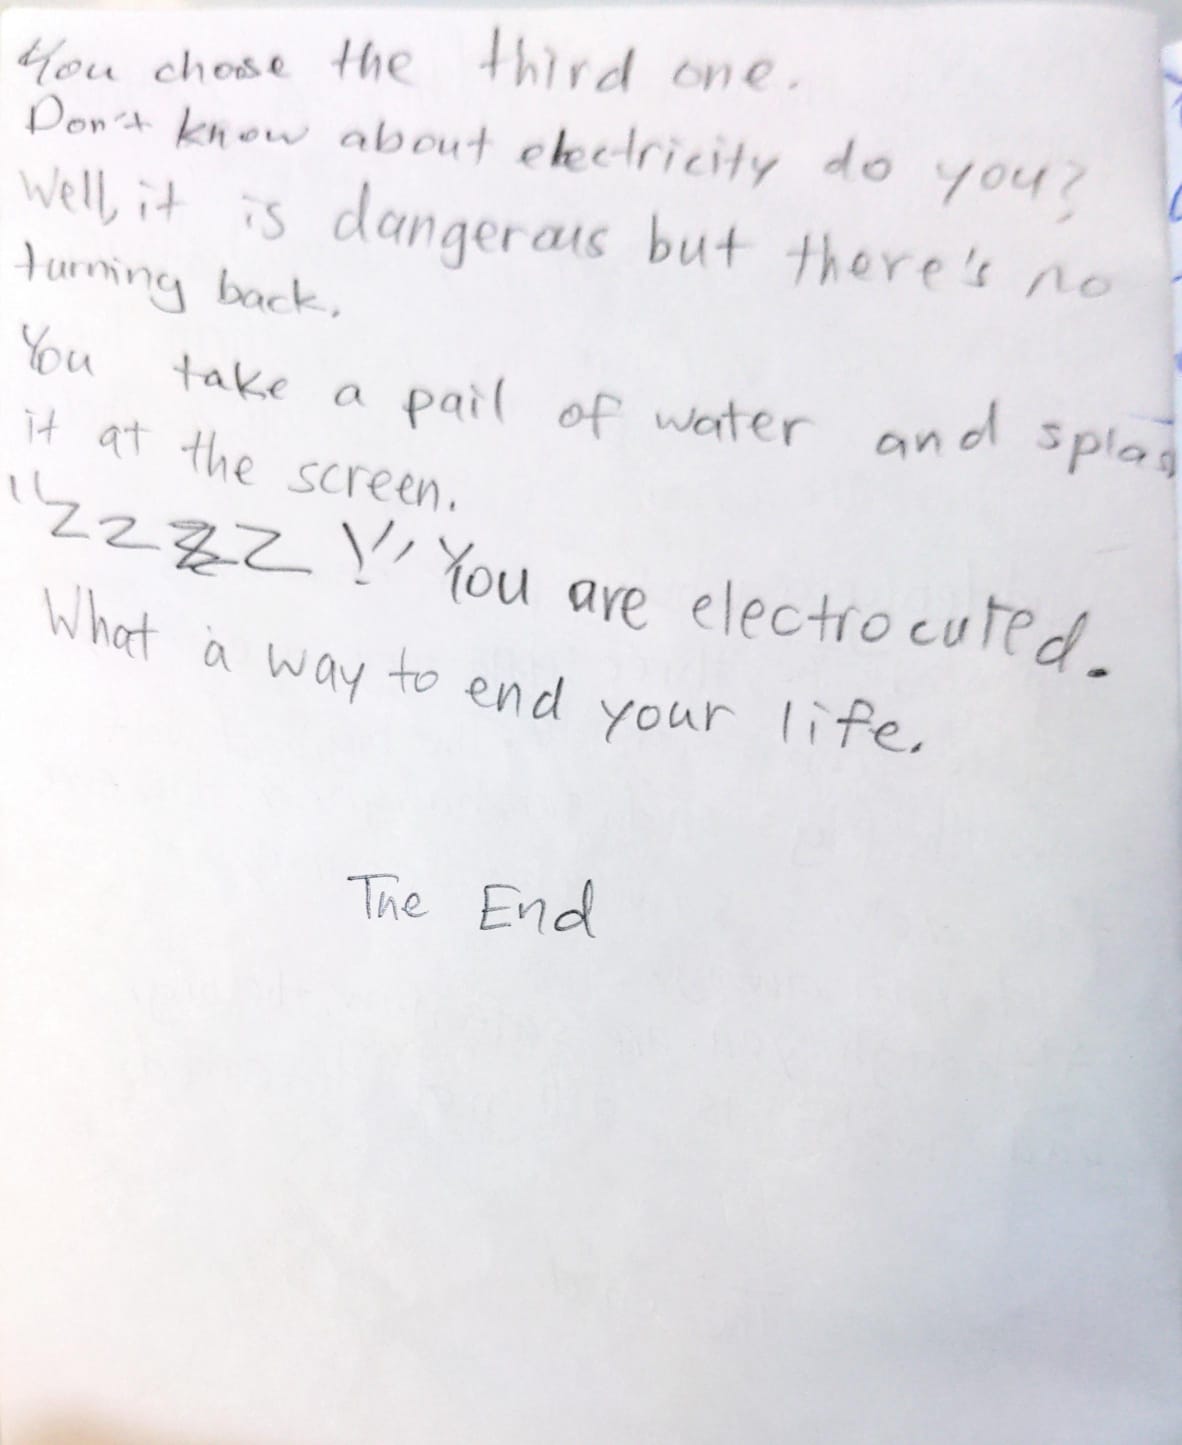 You choose the third one.
Don't know about electricity do you?
Well, it is dangerous but there's no
turning back.
You take a pail of water and splas
it at the screen.
"ZZZZ!" You are electrocuted.
What a way to end your life.
The End